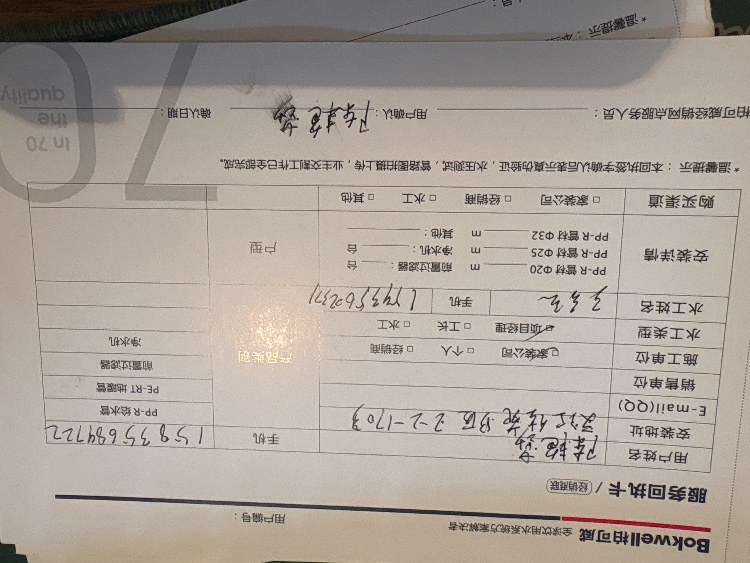 Bokwell柏可威 全球饮用水系统方案解决者 用户编号：
服务回执卡 / 经销商联
用户姓名 手机 15835689722
安装地址 2-2-1703
E-mail(QQ)
销售单位
施工单位 家装公司 □ 个人 □ 经销商
水工类型 项目经理 □ 工长 □ 水工
水工姓名 手机
产品类别
PP-R给水管
PE-RT地暖管
前置过滤器
净水机
安装详情
PP-R 管材 Φ20 m 前置过滤器： 台
PP-R 管材 Φ25 m 净水机： 台
PP-R 管材 Φ32 m 其他：
户型
购买渠道 □ 家装公司 □ 经销商 □ 水工 □ 其他
* 温馨提示：本回执签字确认后表示真伪验证，水压测试，管路图拍摄上传，业主交割工作已全部完成。
柏可威经销网点服务人员： 用户确认： 确认日期：
70
In 70
the
quality
* 温馨提示：本